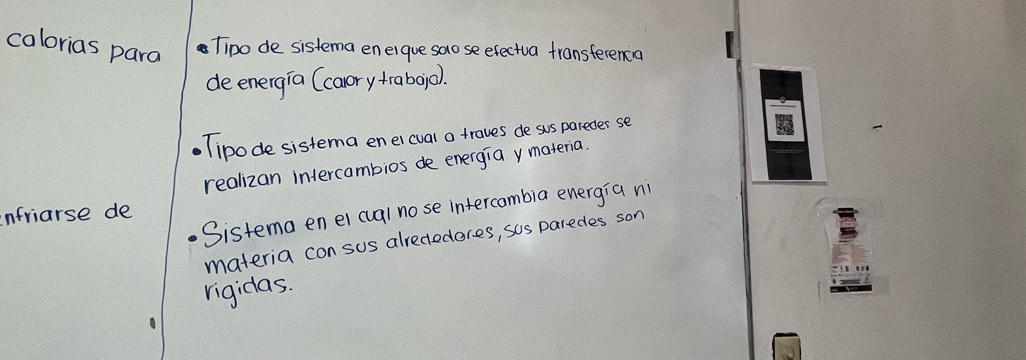 calorias para
nfriarse de
• Tipo de sistema en el que solo se efectua transferencia
de energía (calor y trabajo).
• Tipo de sistema en el cual a traves de sus paredes se
realizan intercambios de energía y materia.
• Sistema en el cual no se intercambia energía ni
materia con sus alrededores, sus paredes son
rigidas.